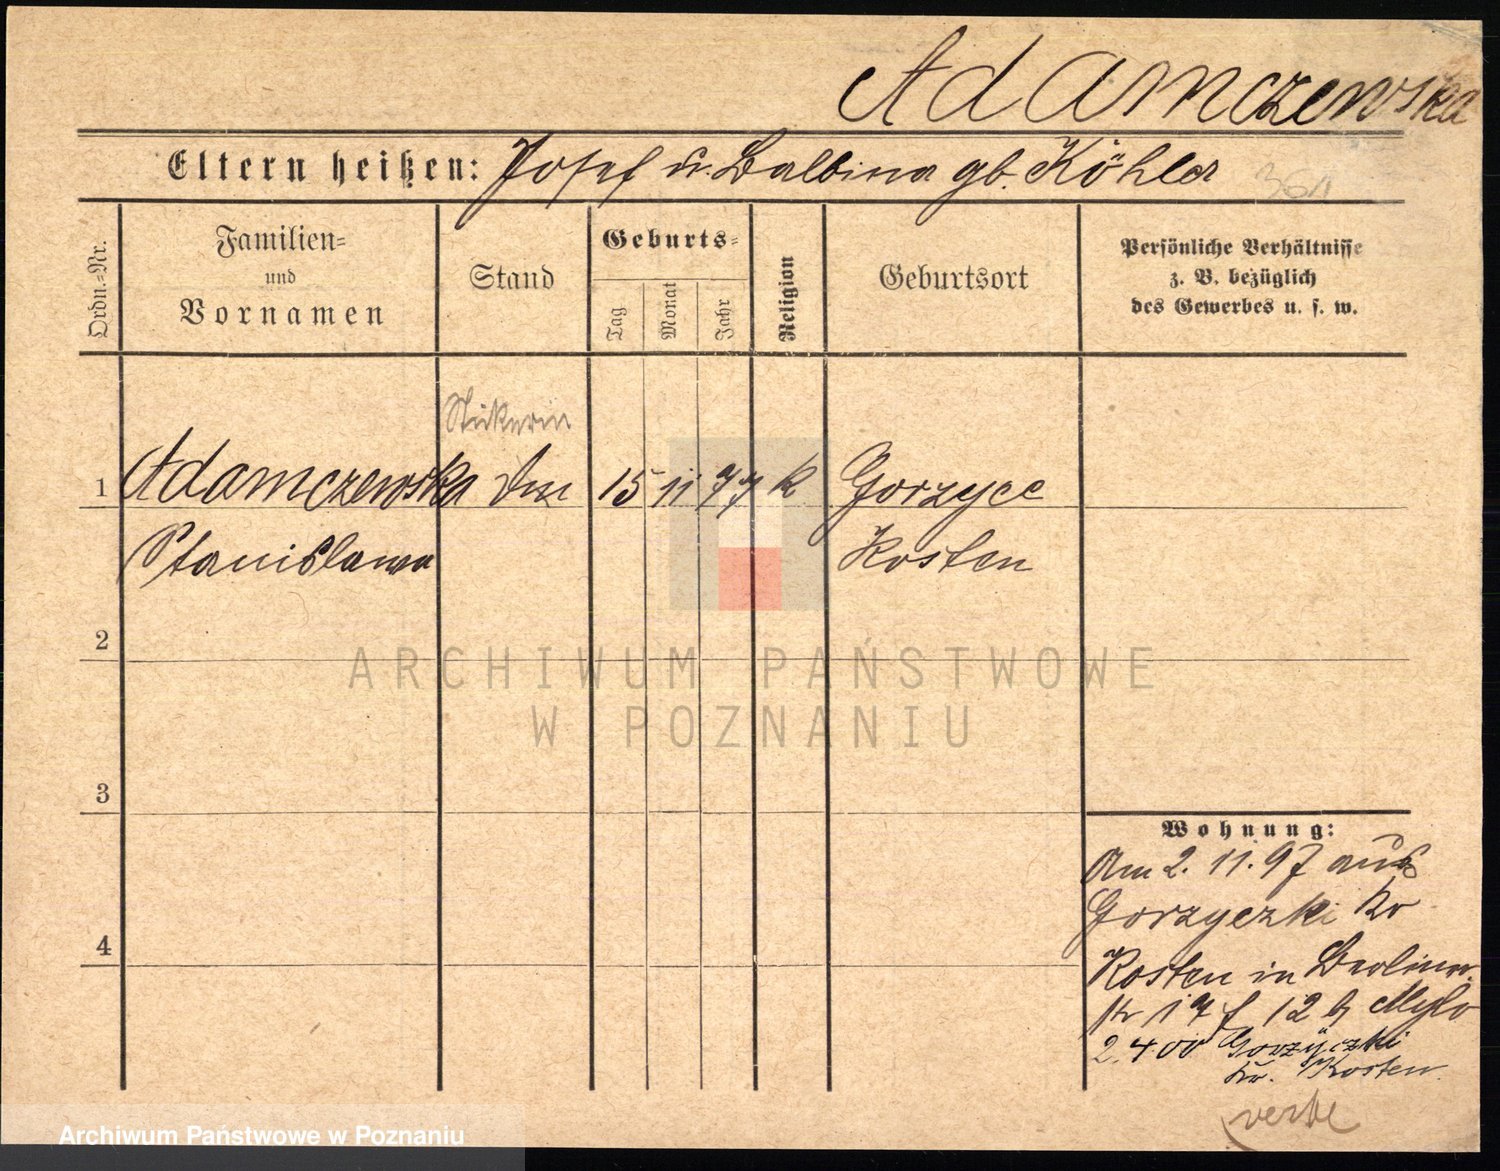 Adamczewska
Eltern heißen: Josef u. Balbina gb. Köhler
361
Ordn.-Nr.
Familien-
und
Vornamen
Stand
Geburts-
Tag
Monat
Jahr
Religion
Geburtsort
Persönliche Verhältnisse
z. B. bezüglich
des Gewerbes u. s. w.
Stickerin
1 Adamczewska 15 11 77 k Gorzyce
Stanislawa Kosten
2
ARCHIWUM PAŃSTWOWE
W POZNANIU
3
Wohnung:
Am 2. 11. 97 aus
Gorzyczki Kr
Kosten in Berliner
str 17 f 12 b Mylo
2.4.00 Gorzyczki
Kr. Kosten.
4
Archiwum Państwowe w Poznaniu